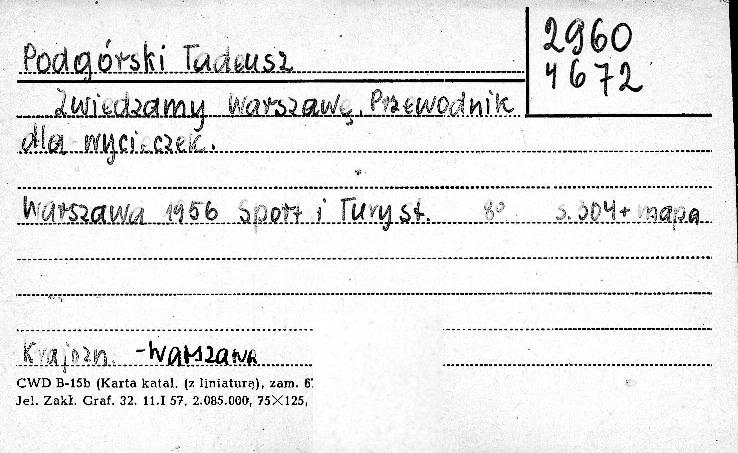 Podgórski Tadeusz
2960
4672
Zwiedzamy Warszawę. Przewodnik
dla wycieczek.
Warszawa 1956 Sport i Turyst. 8° s. 304 + mapa
Krajozn. - Warszawa
CWD B-15b (Karta katal. (z liniaturą), zam. 6
Jel. Zakł. Graf. 32. 11.I 57, 2.085.000, 75×125,